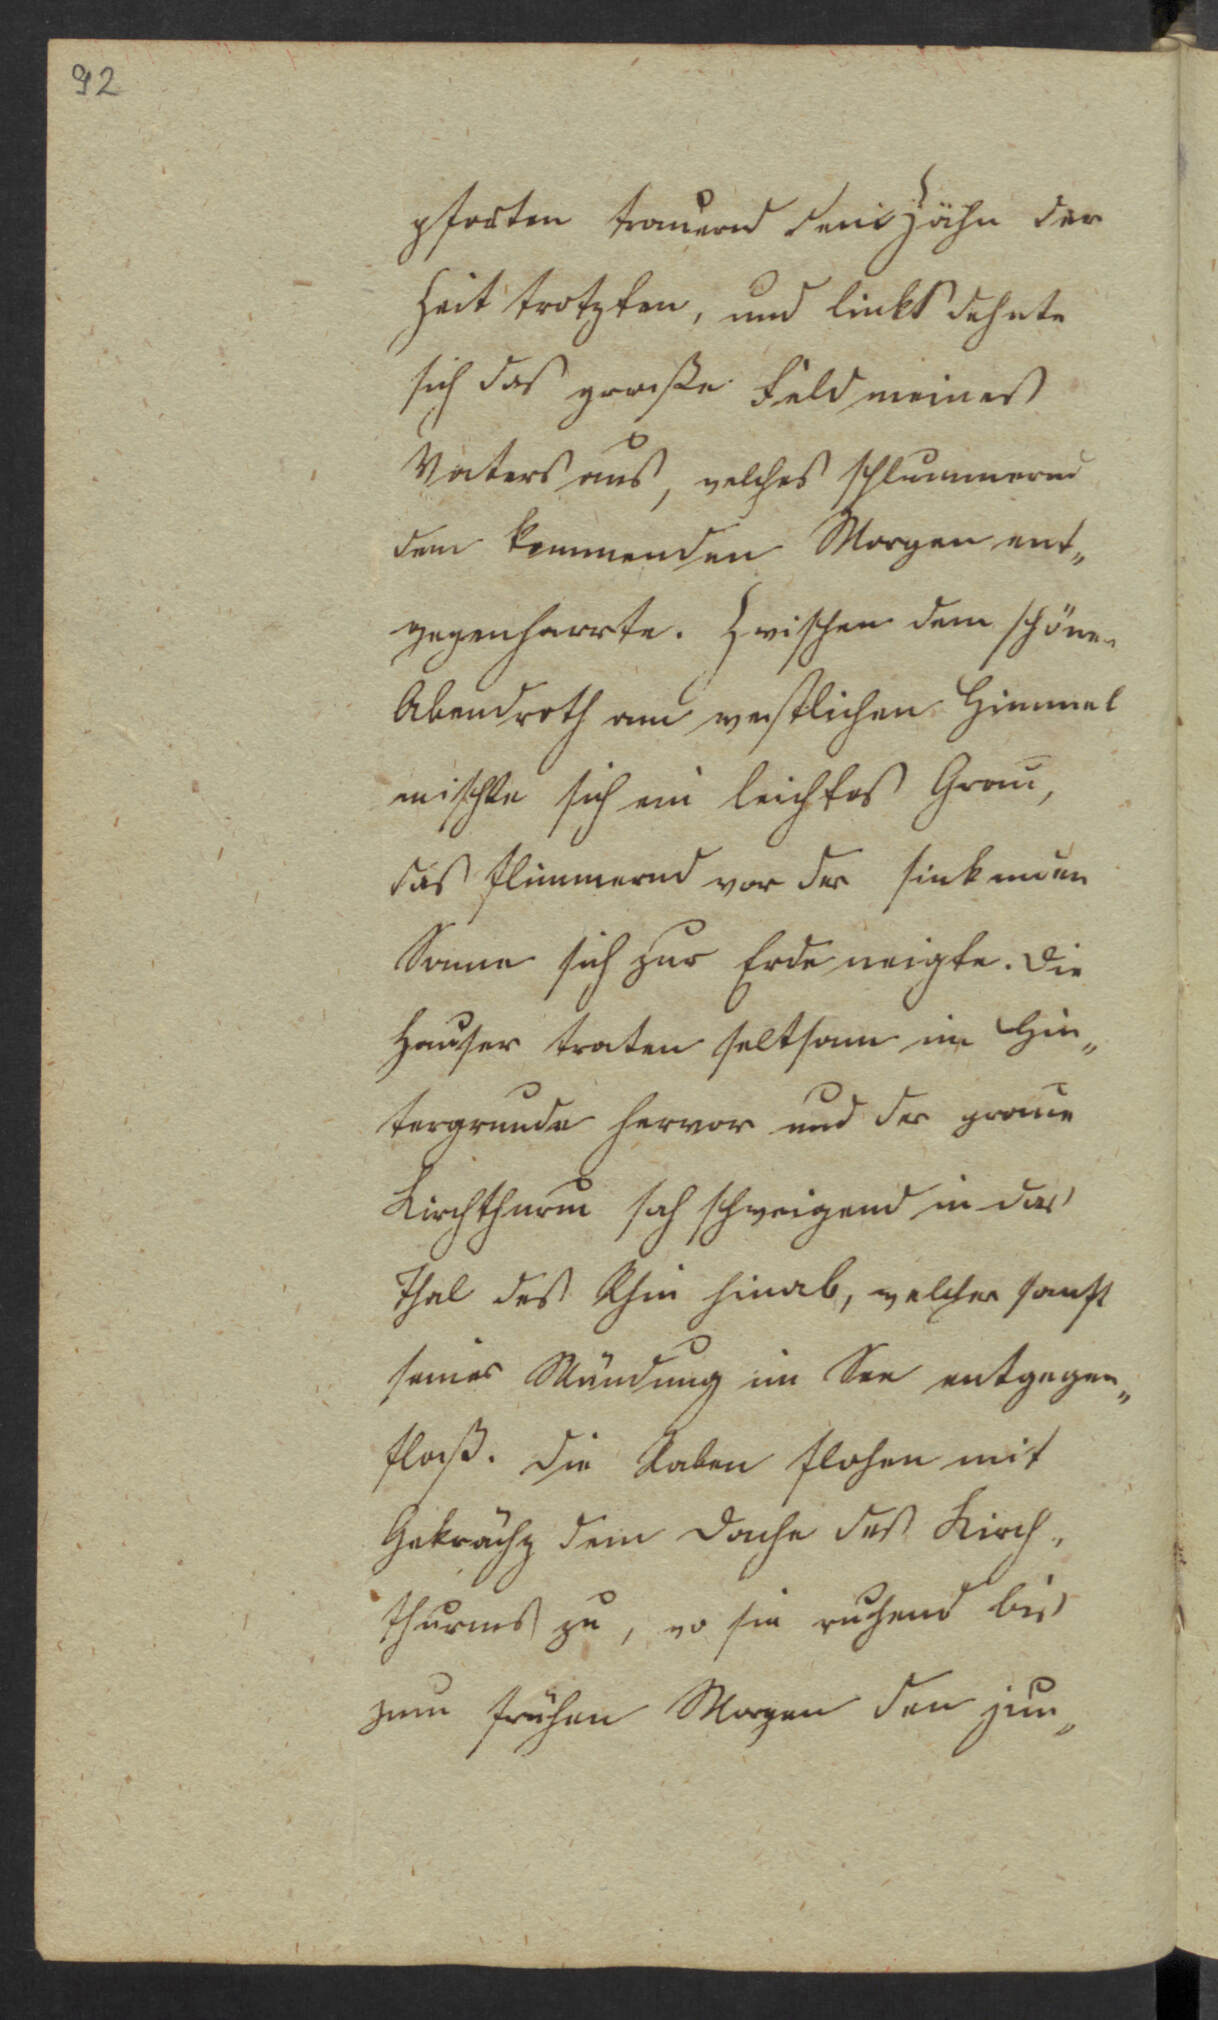 92
pforten trauernd dem Zahn der
Zeit trotzten, und links dehnte
sich das große Feld meines
Vaters aus, welches schlummernd
dem kommenden Morgen ent„
gegenharrte. Zwischen dem schönen
Abendroth am westlichen Himmel
mischte sich ein leichtes Grau,
das flimmernd vor der sinkenden
Sonne sich zur Erde neigte. Die
Häuser traten seltsam im Hin„
tergrunde hervor und der graue
Kirchthurm sah schweigend in das
Thal des Rhin hinab, welcher sanft
seiner Mündung im See entgegen„
floß. Die Raben flohen mit
Gekrächz dem Dache des Kirch„
thurms zu, wo sie ruhend bis
zum frühen Morgen den jun„